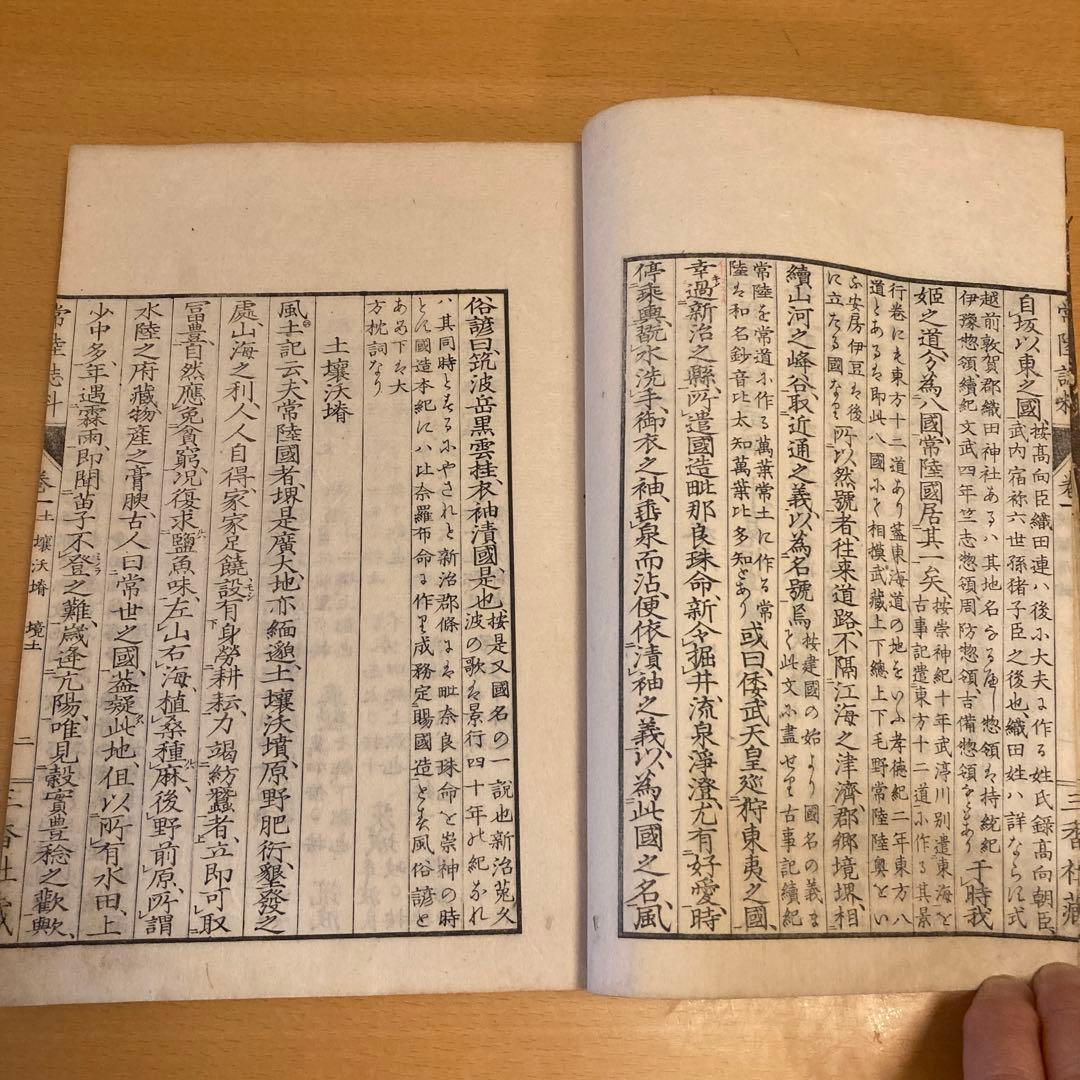 常陸誌料 卷一 三香社藏
自坂以東之國 按高向臣織田連ハ後小大夫に作る姓氏録高向朝臣
武内宿祢六世孫猪子臣之後也織田姓ハ詳ならに式
越前敦賀郡織田神社あるハ其地名なるべし惣領は持統紀
伊豫惣領續紀文武四年竺志惣領周防惣領吉備惣領などあり 于時我
姫之道分為八國常陸國居其一矣 按崇神紀十年武渟川別遣東海を古事記遣東方十二道小作る其景
行卷にも東方十二道あり蓋東海道の地をいふ孝徳紀二年東方八
道とあるも即此八國にて相模武藏上下總上下毛野常陸陸奥とい
ふ安房伊豆は後
に立たる國なり 所以然號者往来道路不隔江海之津濟郡郷境堺相
續山河之峰谷取近通之義以為名號焉 按建國の始より國名の義まで此文小盡せり古事記續紀
常陸を常道小作る萬葉常土に作る常
陸は和名鈔音比太知萬葉比多知とあり 或曰倭武天皇巡狩東夷之國
幸過新治之縣所遣國造毗那良珠命新令掘井流泉淨澄尤有好愛時
停乗輿翫水洗手御衣之袖垂泉而沾便依漬袖之義以為此國之名風
俗諺曰筑波岳黒雲挂衣袖漬國是也 按是又國名の一説也新治菟久
波の歌は景行四十年の紀かれ
ハ其同時とするにやされと新治郡條には毗奈良珠命を崇神の時
とに國造本紀にハ比奈羅布命に作り成務定賜國造とす風俗諺と
あるハ下は大
方枕詞なり
土壤沃塉
風土記云夫常陸國者堺是廣大地亦緬邈土壤沃墳原野肥衍墾發之
處山海之利人人自得家家足饒設有身勞耕耘力竭紡蠶者立即可取
冨豊自然應免貧窮况復求鹽魚味左山右海植桒種麻後野前原所謂
水陸之府藏物産之膏腴古人曰常世之國蓋疑此地但以所有水田上
少中多年遇霖雨即聞苗子不登之難歲逢亢陽唯見穀實豊稔之歡歟
常陸誌料 卷一 土壤沃塉 境土 二 三香社藏